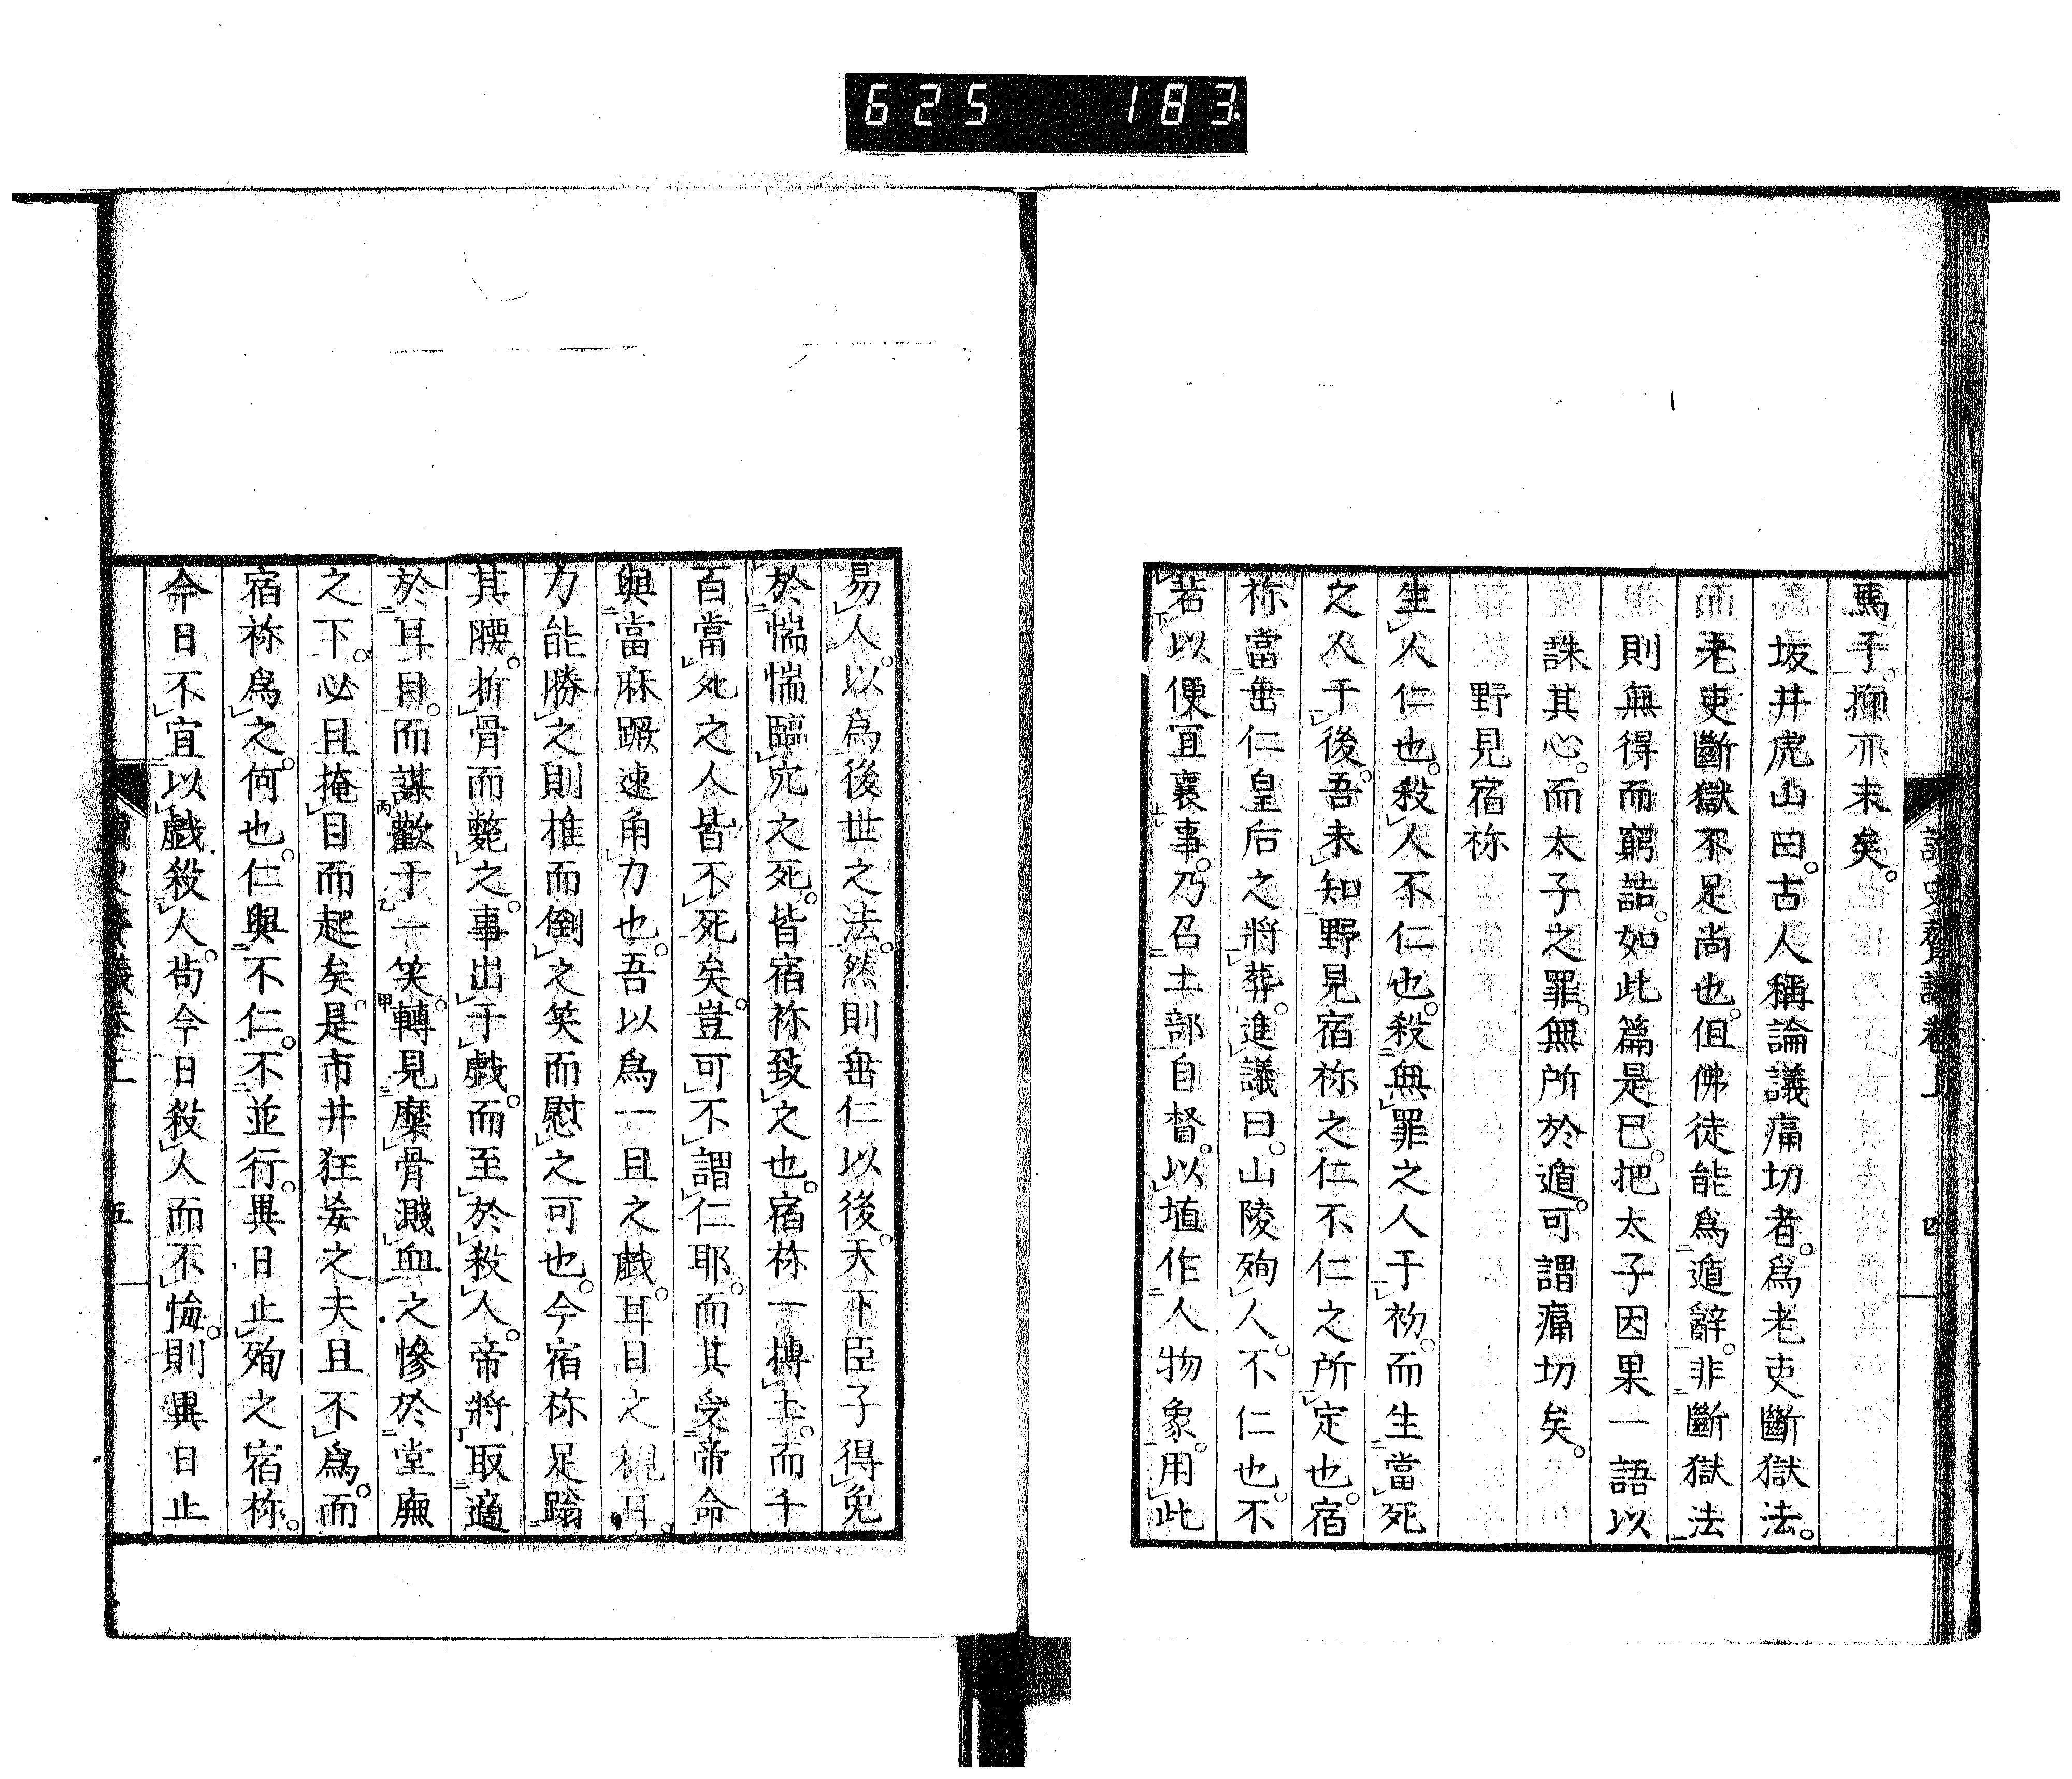 625 183
讀史贅議卷上 四
馬子。抑亦末矣。
坂井虎山曰。古人稱論議痛切者。爲老吏斷獄法。
而老吏斷獄不足尚也。但佛徒能爲遁辭。非斷獄法
則無得而窮詰。如此篇是已。把太子因果一語以
誅其心。而太子之罪。無所於遁。可謂痛切矣。
野見宿祢
生人仁也。殺人不仁也。殺無罪之人于初。而生當死
之人于後。吾未知野見宿祢之仁不仁之所定也。宿
祢當垂仁皇后之將葬。進議曰。山陵殉人。不仁也。不
若以便宜襄事。乃召土部自督。以埴作人物象。用此
易人。以爲後世之法。然則垂仁以後。天下臣子得免
於惴惴臨穴之死。皆宿祢致之也。宿祢一搏土。而千
百當死之人皆不死矣。豈可不謂仁耶。而其受帝命
與當麻蹶速角力也。吾以爲一旦之戲。耳目之觀耳。
力能勝之則推而倒之笑而慰之可也。今宿祢足蹴
其腰。折骨而斃之。事出于戲。而至於殺人。帝將取適
於耳目。而謀歡于一笑。轉見糜骨濺血之慘於堂廡
之下。必且掩目而起矣。是市井狂妄之夫且不爲。而
宿祢爲之。何也。仁與不仁。不並行。異日止殉之宿祢。
今日不宜以戲殺人。苟今日殺人而不悔。則異日止
讀史贅議卷上 五